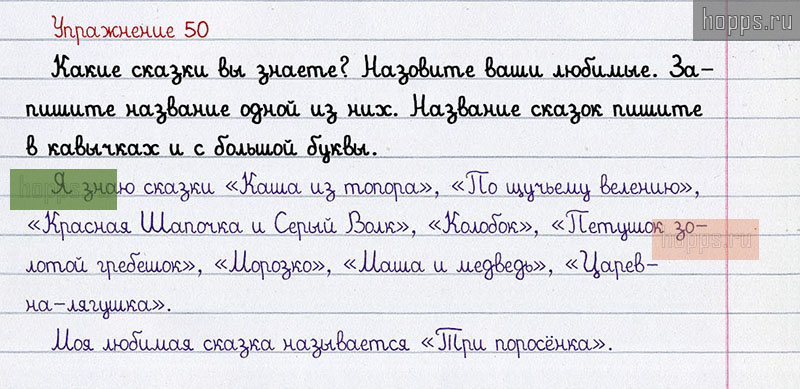 hopps.ru
Упражнение 50
Какие сказки вы знаете? Назовите ваши любимые. За-
пишите название одной из них. Название сказок пишите
в кавычках и с большой буквы.
Я знаю сказки «Каша из топора», «По щучьему велению»,
«Красная Шапочка и Серый Волк», «Колобок», «Петушок зо-
лотой гребешок», «Морозко», «Маша и медведь», «Царев-
на-лягушка».
Моя любимая сказка называется «Три поросёнка».
hopps.ru
hopps.ru